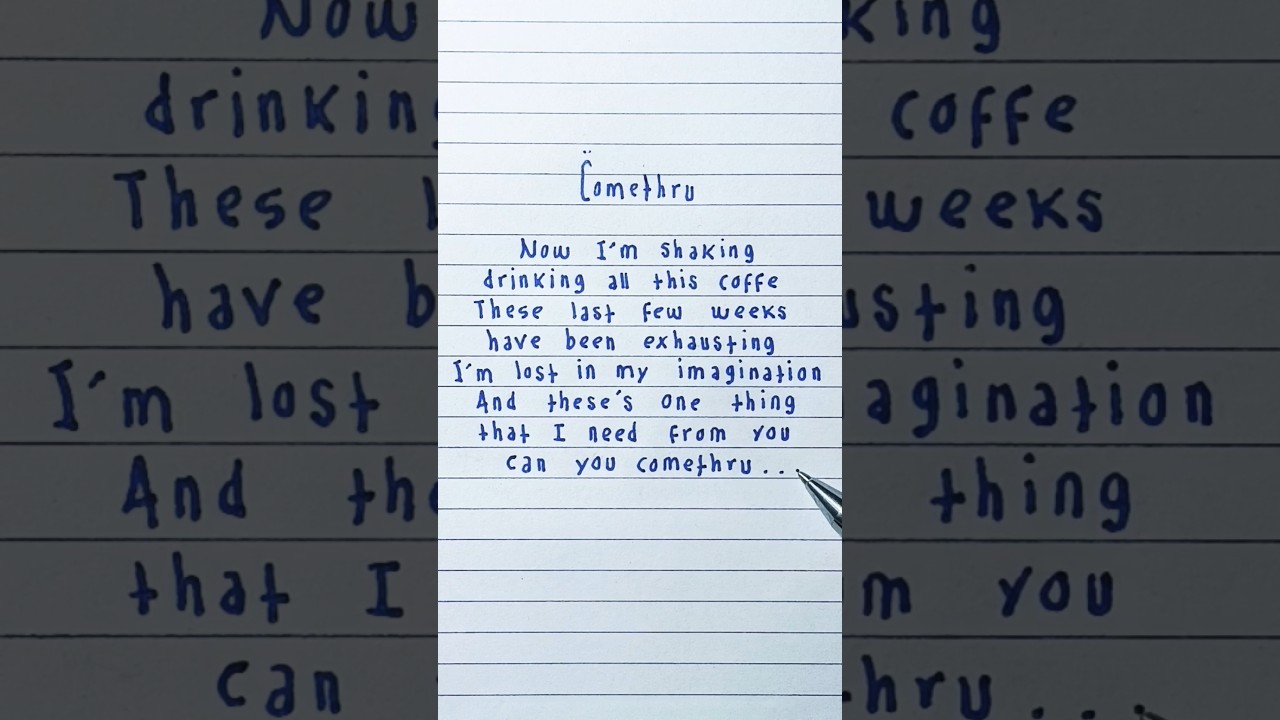 Comethru
Now I'm shaking
drinking all this coffe
These last few weeks
have been exhausting
I'm lost in my imagination
And these's one thing
that I need from you
can you comethru...